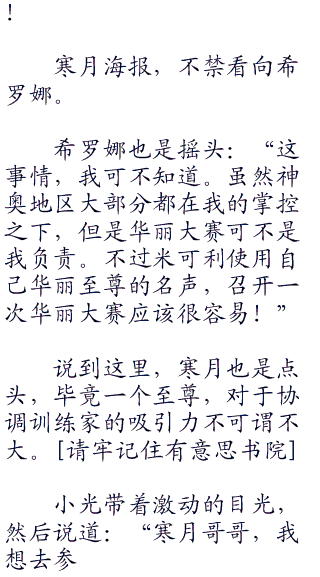 ！
寒月海报，不禁看向希
罗娜。
希罗娜也是摇头：“这
事情，我可不知道。虽然神
奥地区大部分都在我的掌控
之下，但是华丽大赛可不是
我负责。不过米可利使用自
己华丽至尊的名声，召开一
次华丽大赛应该很容易！”
说到这里，寒月也是点
头，毕竟一个至尊，对于协
调训练家的吸引力不可谓不
大。[请牢记住有意思书院]
小光带着激动的目光，
然后说道：“寒月哥哥，我
想去参